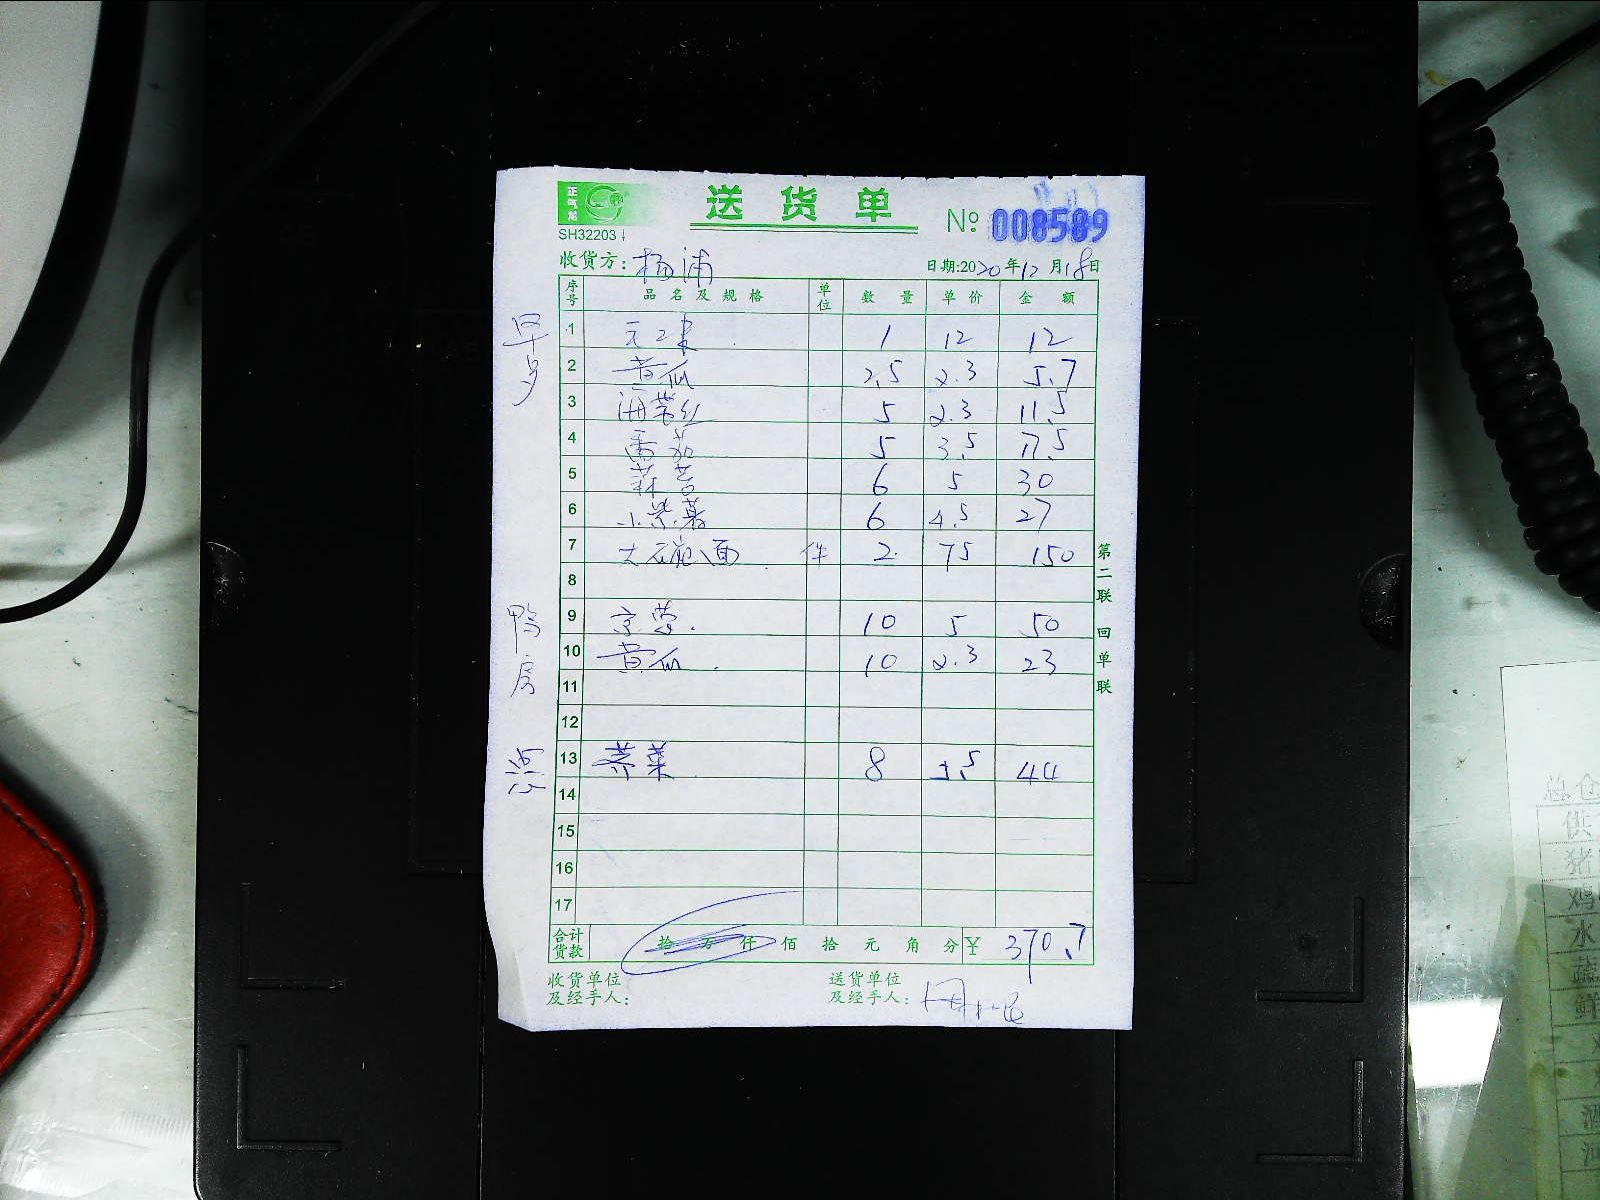 正气龙
送货单
SH32203
No 008589
收货方: 杨浦
日期:2020年12月18日
序号 品名及规格 单位 数量 单价 金额
早
1 1 12 12
2 黄瓜 2.5 2.3 5.7
3 海带丝 5 2.3 11.5
4 番茄 5 3.5 17.5
5 6 5 30
6 小紫薯 6 4.5 27
7 大碗面 件 2 75 150
8
鸭房
9 京葱 10 5 50
10 黄瓜 10 2.3 23
11
12
点心
13 荠菜 8 5.5 44
14
15
16
17
合计货款 拾万仟佰拾元角分 ¥ 370.7
收货单位及经手人:
送货单位及经手人:
第二联 回单联
总仓
供
猪
鸡
水
蔬
鲜